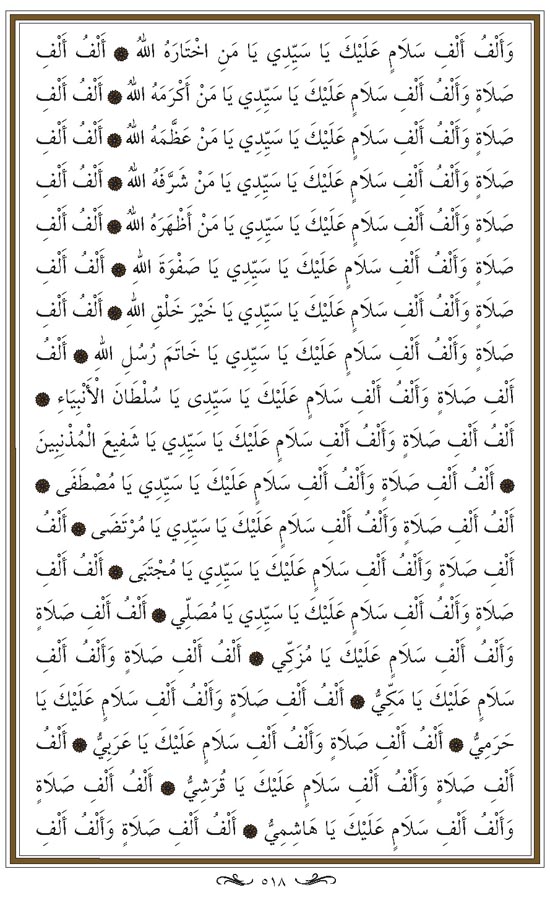 وَأَلْفُ أَلْفِ سَلَامٍ عَلَيْكَ يَا سَيِّدِي يَا مَنِ اخْتَارَهُ اللهُ ۞ أَلْفُ أَلْفِ
صَلَاةٍ وَأَلْفُ أَلْفِ سَلَامٍ عَلَيْكَ يَا سَيِّدِي يَا مَنْ أَكْرَمَهُ اللهُ ۞ أَلْفُ أَلْفِ
صَلَاةٍ وَأَلْفُ أَلْفِ سَلَامٍ عَلَيْكَ يَا سَيِّدِي يَا مَنْ عَظَّمَهُ اللهُ ۞ أَلْفُ أَلْفِ
صَلَاةٍ وَأَلْفُ أَلْفِ سَلَامٍ عَلَيْكَ يَا سَيِّدِي يَا مَنْ شَرَّفَهُ اللهُ ۞ أَلْفُ أَلْفِ
صَلَاةٍ وَأَلْفُ أَلْفِ سَلَامٍ عَلَيْكَ يَا سَيِّدِي يَا مَنْ أَظْهَرَهُ اللهُ ۞ أَلْفُ أَلْفِ
صَلَاةٍ وَأَلْفُ أَلْفِ سَلَامٍ عَلَيْكَ يَا سَيِّدِي يَا صَفْوَةَ اللهِ ۞ أَلْفُ أَلْفِ
صَلَاةٍ وَأَلْفُ أَلْفِ سَلَامٍ عَلَيْكَ يَا سَيِّدِي يَا خَيْرَ خَلْقِ اللهِ ۞ أَلْفُ أَلْفِ
صَلَاةٍ وَأَلْفُ أَلْفِ سَلَامٍ عَلَيْكَ يَا سَيِّدِي يَا خَاتَمَ رُسُلِ اللهِ ۞ أَلْفُ
أَلْفِ صَلَاةٍ وَأَلْفُ أَلْفِ سَلَامٍ عَلَيْكَ يَا سَيِّدِى يَا سُلْطَانَ الْأَنْبِيَاءِ ۞
أَلْفُ أَلْفِ صَلَاةٍ وَأَلْفُ أَلْفِ سَلَامٍ عَلَيْكَ يَا سَيِّدِي يَا شَفِيعَ الْمُذْنِبِينَ
۞ أَلْفُ أَلْفِ صَلَاةٍ وَأَلْفُ أَلْفِ سَلَامٍ عَلَيْكَ يَا سَيِّدِي يَا مُصْطَفَى ۞
أَلْفُ أَلْفِ صَلَاةٍ وَأَلْفُ أَلْفِ سَلَامٍ عَلَيْكَ يَا سَيِّدِي يَا مُرْتَضَى ۞ أَلْفُ
أَلْفِ صَلَاةٍ وَأَلْفُ أَلْفِ سَلَامٍ عَلَيْكَ يَا سَيِّدِي يَا مُجْتَبَى ۞ أَلْفُ أَلْفِ
صَلَاةٍ وَأَلْفُ أَلْفِ سَلَامٍ عَلَيْكَ يَا سَيِّدِي يَا مُصَلِّي ۞ أَلْفُ أَلْفِ صَلَاةٍ
وَأَلْفُ أَلْفِ سَلَامٍ عَلَيْكَ يَا مُزَكِّي ۞ أَلْفُ أَلْفِ صَلَاةٍ وَأَلْفُ أَلْفِ
سَلَامٍ عَلَيْكَ يَا مَكِّيُّ ۞ أَلْفُ أَلْفِ صَلَاةٍ وَأَلْفُ أَلْفِ سَلَامٍ عَلَيْكَ يَا
حَرَمِيُّ ۞ أَلْفُ أَلْفِ صَلَاةٍ وَأَلْفُ أَلْفِ سَلَامٍ عَلَيْكَ يَا عَرَبِيُّ ۞ أَلْفُ
أَلْفِ صَلَاةٍ وَأَلْفُ أَلْفِ سَلَامٍ عَلَيْكَ يَا قُرَشِيُّ ۞ أَلْفُ أَلْفِ صَلَاةٍ
وَأَلْفُ أَلْفِ سَلَامٍ عَلَيْكَ يَا هَاشِمِيُّ ۞ أَلْفُ أَلْفِ صَلَاةٍ وَأَلْفُ أَلْفِ
٥١٨